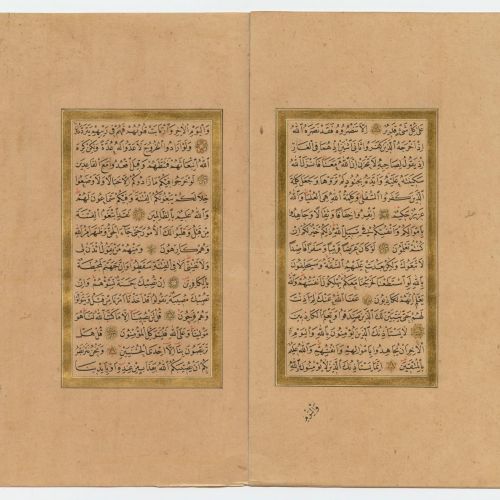 على كل شيء قدير إلا تنصروه فقد نصره الله
إذ أخرجه الذين كفروا ثاني اثنين إذ هما في الغار
إذ يقول لصاحبه لا تحزن إن الله معنا فأنزل الله
سكينته عليه وأيده بجنود لم تروها وجعل كلمة
الذين كفروا السفلى وكلمة الله هي العليا والله
عزيز حكيم انفروا خفافا وثقالا وجاهدوا
بأموالكم وأنفسكم في سبيل الله ذلكم خير لكم إن
كنتم تعلمون لو كان عرضا قريبا وسفرا قاصدا
لاتبعوك ولكن بعدت عليهم الشقة وسيحلفون
بالله لو استطعنا لخرجنا معكم يهلكون أنفسهم والله
يعلم إنهم لكاذبون عفا الله عنك لم أذنت
لهم حتى يتبين لك الذين صدقوا وتعلم الكاذبين
لا يستأذنك الذين يؤمنون بالله واليوم
الآخر أن يجاهدوا بأموالهم وأنفسهم والله عليم
بالمتقين إنما يستأذنك الذين لا يؤمنون بالله
واليوم
واليوم الآخر وارتابت قلوبهم فهم في ريبهم يترددون
ولو أرادوا الخروج لأعدوا له عدة ولكن كره
الله انبعاثهم فثبطهم وقيل اقعدوا مع القاعدين
لو خرجوا فيكم ما زادوكم إلا خبالا ولأوضعوا
خلالكم يبغونكم الفتنة وفيكم سماعون لهم
والله عليم بالظالمين لقد ابتغوا الفتنة
من قبل وقلبوا لك الأمور حتى جاء الحق وظهر أمر الله
وهم كارهون ومنهم من يقول ائذن لي
ولا تفتني ألا في الفتنة سقطوا وإن جهنم لمحيطة
بالكافرين إن تصبك حسنة تسؤهم وإن
تصبك مصيبة يقولوا قد أخذنا أمرنا من قبل ويتولوا
وهم فرحون قل لن يصيبنا إلا ما كتب الله لنا هو
مولانا وعلى الله فليتوكل المؤمنون قل هل
تربصون بنا إلا إحدى الحسنيين ونحن نتربص
بكم أن يصيبكم الله بعذاب من عنده أو بأيدينا